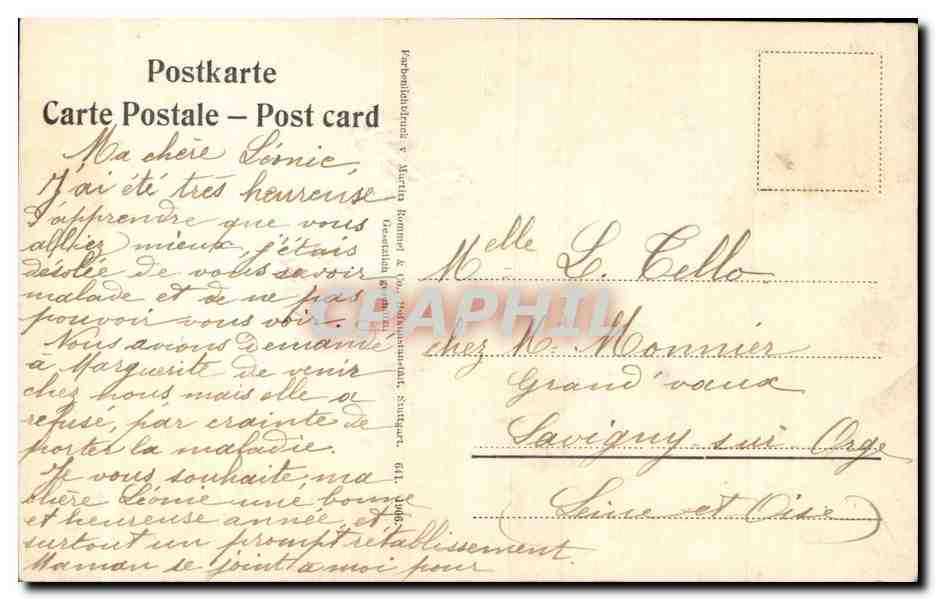 Postkarte
Carte Postale – Post card
Ma chère Léonie
J'ai été très heureuse
d'apprendre que vous
alliez mieux, j'étais
désolée de vous savoir
malade et de ne pas
pouvoir vous voir.
Nous avions demandé
à Marguerite de venir
chez nous mais elle a
refusé, par crainte de
porter la maladie.
Je vous souhaite ma
chère Léonie une bonne
et heureuse année, et
surtout un prompt rétablissement
Maman se joint à moi pour
Farbenlichtdruck v. Martin Rommel & Co., Hofkunstanstalt, Stuttgart. 641. 1906.
Gesetzlich geschützt
Melle L. Tello
chez Mr Monnier
Grand'vaux
Savigny-sur-Orge
(Seine et Oise)
CPAPHIL